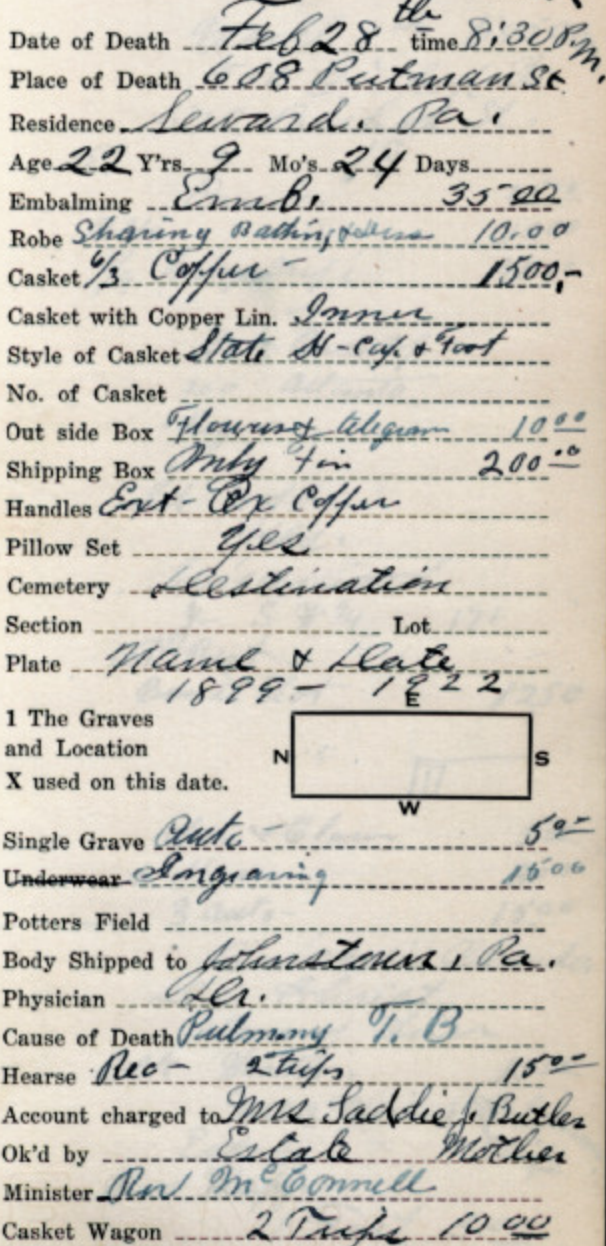 Date of Death Feb 28th time 8:30 P.M.
Place of Death 608 Putman St
Residence Seward. Pa.
Age 22 Y'rs 9 Mo's 24 Days
Embalming Emb. 35 00
Robe Shaving Bathing & Dress 10.00
Casket 6/3 Copper - 1500,-
Casket with Copper Lin. Inner
Style of Casket State H-Cap & Foot
No. of Casket
Out side Box Flowers & telegram 10 00
Shipping Box Only Tin 200.00
Handles Ext- Ex Copper
Pillow Set Yes
Cemetery Destination
Section Lot
Plate Name & Date
1899 - 1922
E
1 The Graves
and Location
X used on this date.
N S
W
Single Grave Auto 5 00
Underwear Ingraving 15 00
Potters Field
Body Shipped to Johnstown, Pa.
Physician Dr.
Cause of Death Pulmony T. B
Hearse Rec - 2 trips 15 00
Account charged to Mrs Saddie J. Butler
Ok'd by Estate Mother
Minister Rev McConnell
Casket Wagon 2 Trips 10 00